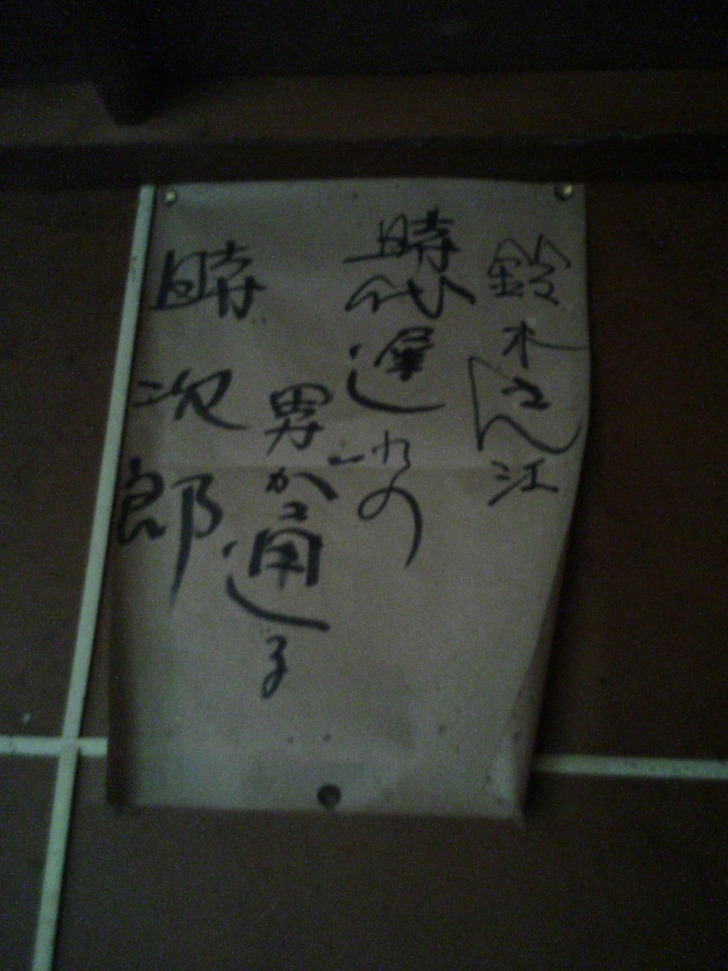 鈴木さん江
時代遅れの
男が通る
時次郎